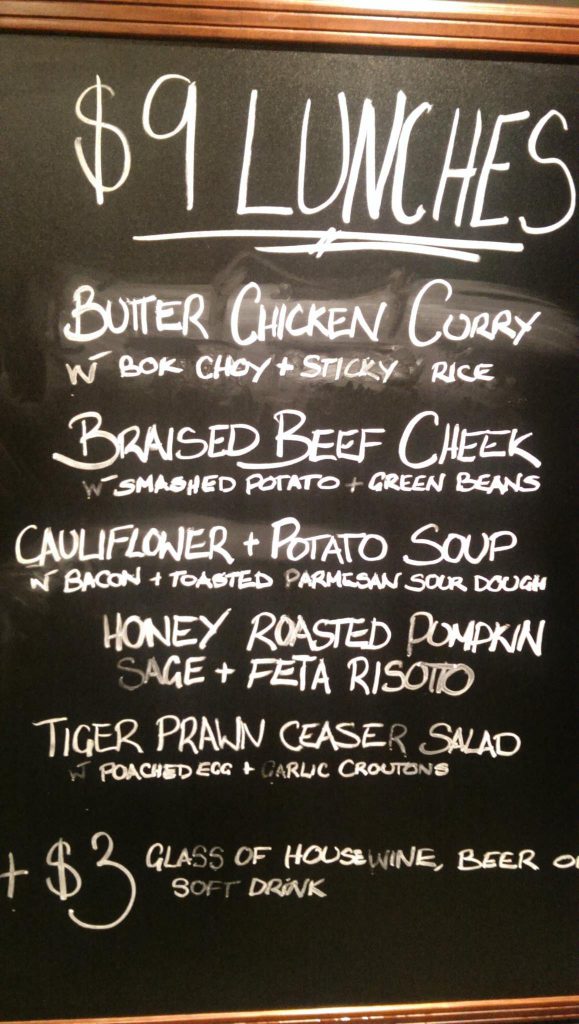 $9 LUNCHES
BUTTER CHICKEN CURRY
W BOK CHOY + STICKY RICE
BRAISED BEEF CHEEK
W SMASHED POTATO + GREEN BEANS
CAULIFLOWER + POTATO SOUP
W BACON + TOASTED PARMESAN SOUR DOUGH
HONEY ROASTED PUMPKIN
SAGE + FETA RISOTTO
TIGER PRAWN CEASER SALAD
W POACHED EGG + GARLIC CROUTONS
+ $3 GLASS OF HOUSE WINE, BEER OR
SOFT DRINK